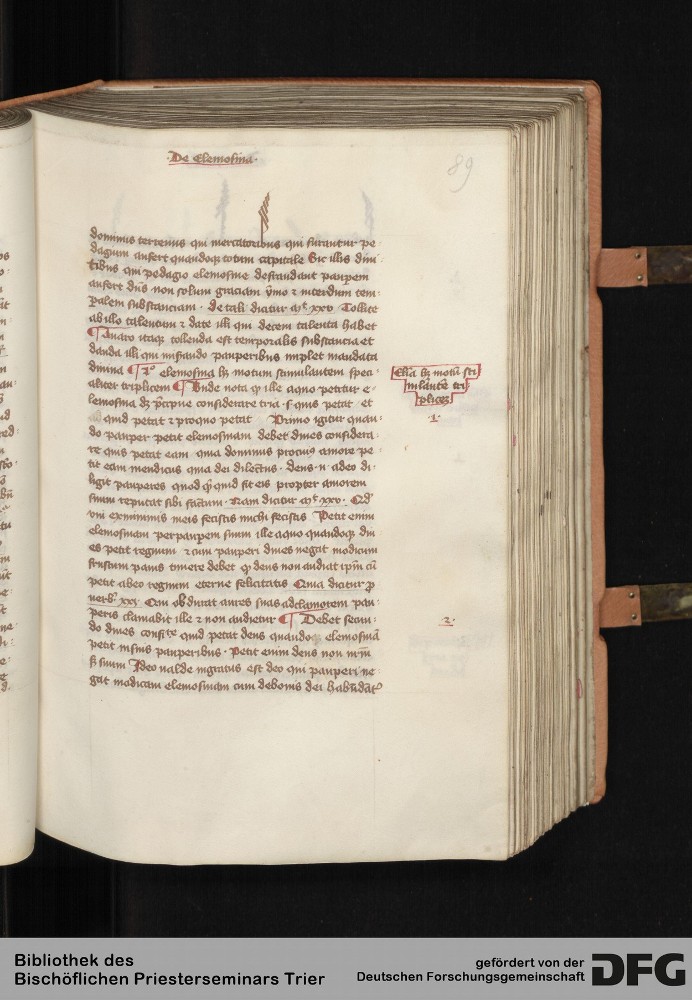 ·De Elemosina·
89
dominus terrenus qui mercatoribus qui furantur pe
dagium aufert quandoqз totum capitale Sic illis divi
tibus qui pedagio elemosine defraudant pauperem
aufert dns non solum graciam ymo ⁊ interdum tem
poralem substanciam · de tali dicitur mt xxv Tollite
ab illo talentum ⁊ date illi qui decem talenta habet
¶ Quare itaqз tollenda est temporalis substancia et
danda illi qui misrando pauperibus implet mandata
divina ¶ elemosina hз motum stimulantem speci
aliter triplicem ¶ Unde nota ille a quo petitur e
lemosina dз considerare tria · s · quis petat et
quid petat ⁊ pro quo petat Primo igitur quan
do pauper petit elemosinam debet dives considera
re quis petat eam quia dominus amore pe
tit eam mendicus quia dei dilectus · deus · n · adeo di
ligit pauperes quod quid sit eis propter amorem
suum reputat sibi factum · Nam dicitur mt xxv · Qd
uni ex minimis meis fecistis michi fecistis Petit enim
elemosinam per pauperem suum ille a quo quandoqз div
es petit regnum ⁊ cum pauperi dives negat modicum
frustum panis timere debet deus non audiat ipm cu
petit ab eo regnum eterne felicitatis Quia dicitur p
verb xxi Qui obdurat aures suas ad clamorem pau
peris clamabit ille ⁊ non audietur ¶ Debet secun
do dives quid petat deus quando elemosina
petit in suis pauperibus · Petit enim deus non nrm
suum Ideo valde ingratus est deo qui pauperi ne
gat modicam elemosinam cum de bonis dei habundat
Elia hз motu sti
mulante tri
plicez
·1·
·2·
Bibliothek des
Bischöflichen Priesterseminars Trier
gefördert von der
Deutschen Forschungsgemeinschaft
DFG